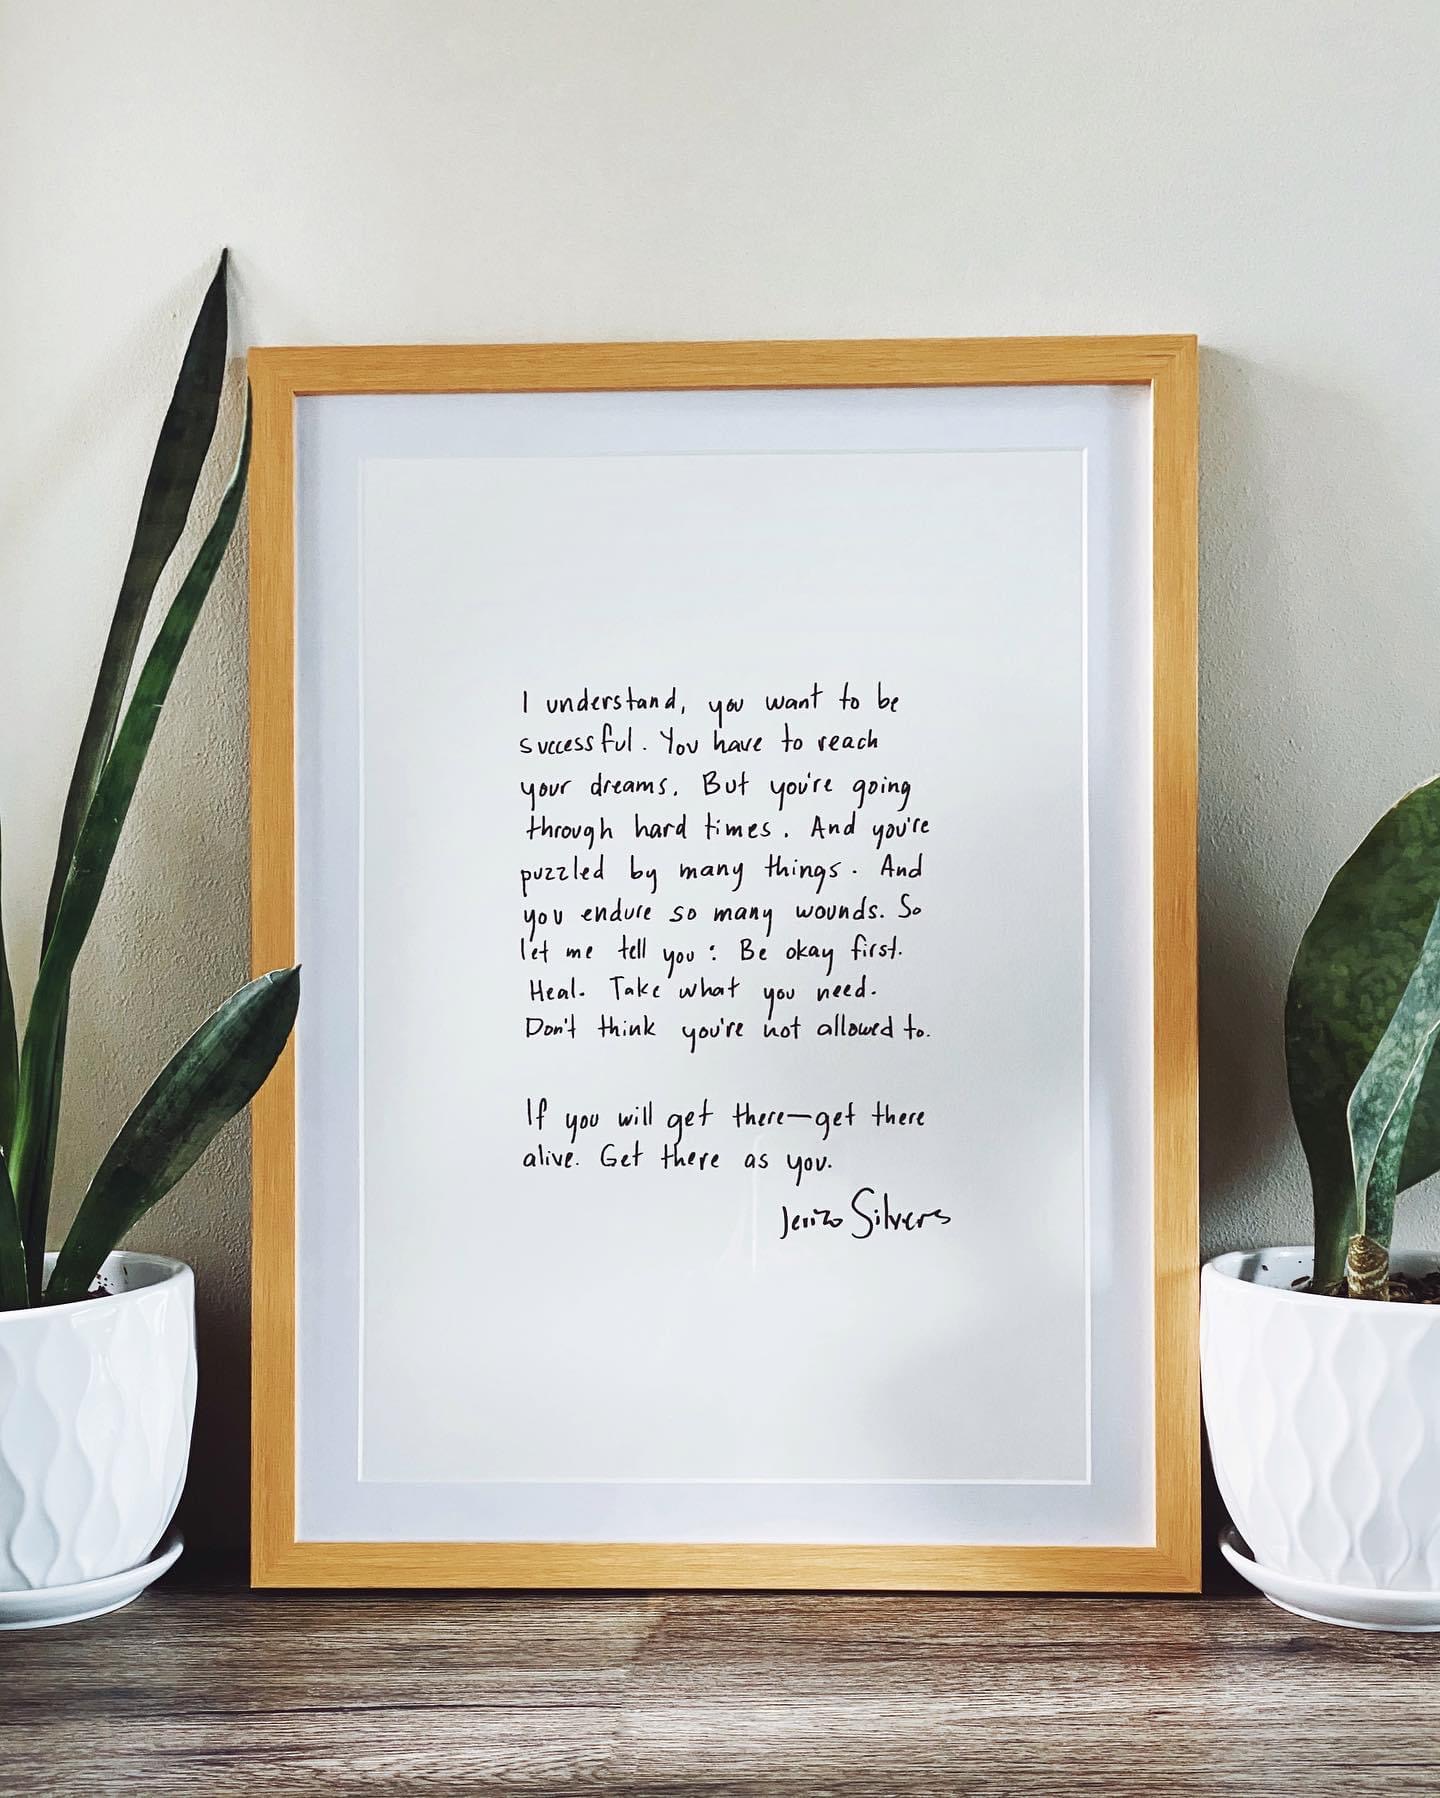 I understand, you want to be
successful. You have to reach
your dreams. But you're going
through hard times. And you're
puzzled by many things. And
you endure so many wounds. So
let me tell you: Be okay first.
Heal. Take what you need.
Don't think you're not allowed to.
If you will get there—get there
alive. Get there as you.
Jerizo Silvers